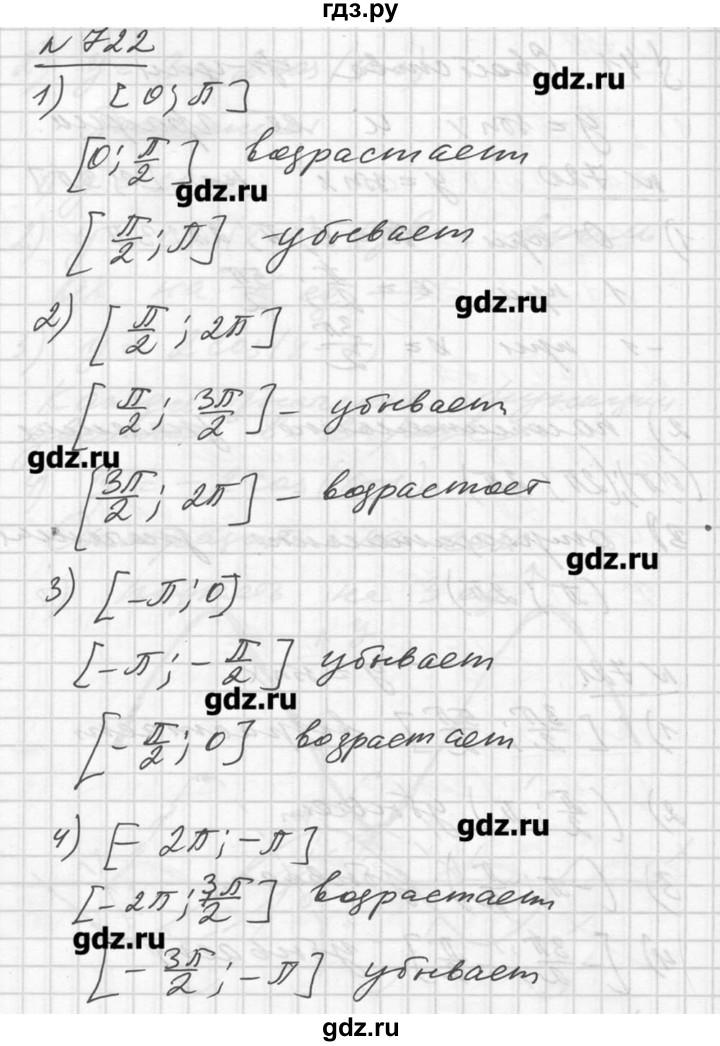 гдз.ру
№ 722
gdz.ru
1) [0; π]
[0; π/2] возрастает
gdz.ru
[π/2; π] - убывает
gdz.ru
2) [π/2; 2π]
[π/2; 3π/2] - убывает
gdz.ru
[3π/2; 2π] - возрастает
gdz.ru
3) [-π; 0]
[-π; -π/2] убывает
gdz.ru
[-π/2; 0] возрастает
gdz.ru
4) [- 2π; -π]
[-2π; 3π/2] возрастает
gdz.ru
[- 3π/2; -π] убывает
gdz.ru